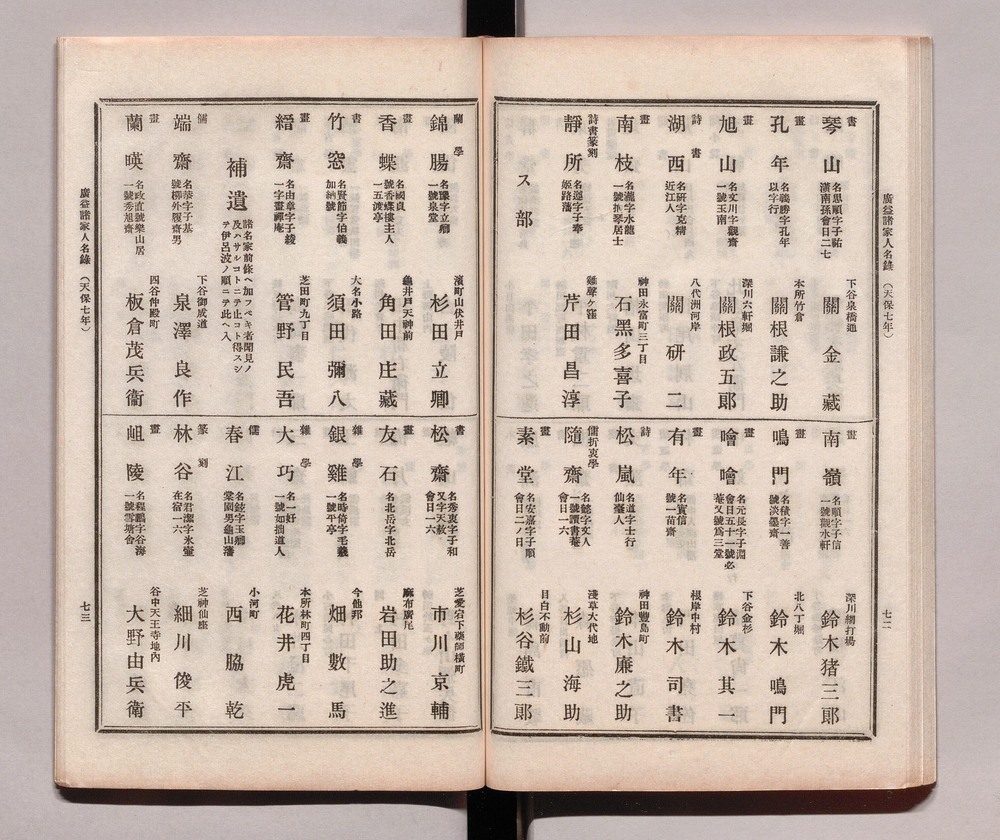 廣益諸家人名錄 (天保七年)
七二
書 琴山 名思順字子祐 漢南孫會日二七 下谷泉橋通 關金藏
畫 孔年 名義勝字孔年 以字行 本所竹倉 關根謙之助
畫 旭山 名文川字觀齋 一號玉南 深川六軒堀 關根政五郞
詩書 湖西 名研字克精 近江人 八代洲河岸 關研二
畫 南枝 名瀧字水龍 一號琴居士 神田永富町三丁目 石黑多喜子
詩書篆刻 靜所 字子奉 姬路藩 雞聲ケ窪 芹田昌淳
ス部
畫 南嶺 名順字子信 一號觀水軒 深川網打塲 鈴木猪三郞
畫 鳴門 名積字一善 號淡墨齋 北八丁堀 鈴木鳴門
畫 噲噲 名元長字子淵 會日五十一號必 菴又號爲三堂 下谷金杉 鈴木其一
畫 有年 名寘信 號一苗齋 根岸中村 鈴木司書
詩 松嵐 名道字士行 仙臺人 神田豐島町 鈴木廉之助
儒折衷學 隨齋 字文人 一號讀書菴 會日一六 淺草大代地 杉山海助
畫 素堂 名安嘉字子順 會日二ノ日 目白不動前 杉谷鐵三郞
蘭學 錦腸 名豫字立卿 一號泉堂 濱町山伏井戸 杉田立卿
畫 香蝶 名國貞 號香蝶樓主人 一五渡亭 龜井戸天神前 角田庄藏
書 竹窓 名賢節字伯義 加納號 大名小路 須田彌八
畫 縉齋 名由章字子綾 一字畫禪庵 芝田町九丁目 管野民吾
補遺 諸名家前條へ加フベキ者聞見ノ
及ハサルコトニテ止コト得スシ
テ伊呂波ノ順ニテ此へ入
儒 端齋 字子基 號柳外履齋男 下谷御成道 泉澤良作
畫 蘭暎 名政直號樂山居 一號秀旭齋 四谷仲殿町 板倉茂兵衞
書 松齋 名秀衷字子和 又字天赦 會日一六 芝愛宕下藥師橫町 市川京輔
畫 友石 名北岳字北岳 麻布廣尾 岩田助之進
雜學 銀雞 名時倚字毛義 一號平亭 今他邦 畑數馬
雜學 大巧 名一好 一號如拙道人 本所林町四丁目 花井虎一
儒 春江 字玉卿 棠園男龜山藩 小河町 西脇乾
篆刻 林谷 名君潔字氷壺 在宿一六 芝神仙座 細川俊平
畫 岨陵 名程鵬字谷海 一號雪塘舍 谷中天王寺地內 大野由兵衞
廣益諸家人名錄 (天保七年)
七三